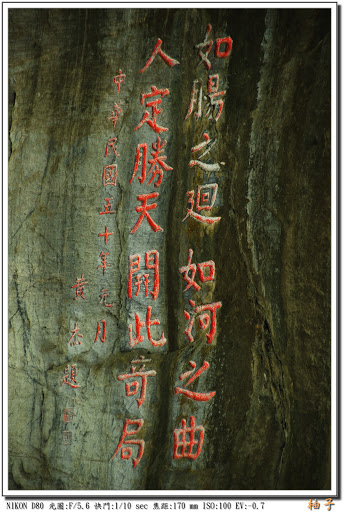 如腸之迴如河之曲
人定勝天開此奇局
中華民國五十年元月
黃杰題
NIKON D80 光圈:F/5.6 快門:1/10 sec 焦距:170 mm ISO:100 EV:-0.7
柚子